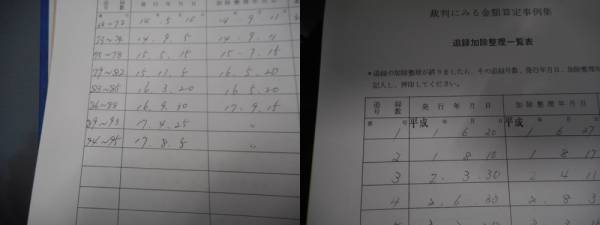 14 . 5 . 10
73~74 14 . 9 . 5 14 . 9 . 11
75~78 15 . 5 . 15 15 - 7 . 15
79~82 15 . 11 . 5 16 . 5 . 20
83~85 16 . 3 . 20 16 . 5 . 20
86~88 16 . 9 . 30 17 . 9 . 15
89~93 17 . 4 . 25 〃
94~95 17 . 8 . 5 〃
裁判にみる金額算定事例集
追録加除整理一覧表
*追録の加除整理が終りましたら、その追録号数、発行年月日、加除整理年
記入し、押印してください。
追録号数 発行年月日 加除整理年月日
平成 平成
1 1 6 20 1 6 27
2 1 8 10 1 8 17
3 2 . 3 . 30 2 4 11
4 2 . 6 . 30 2 . 8 3